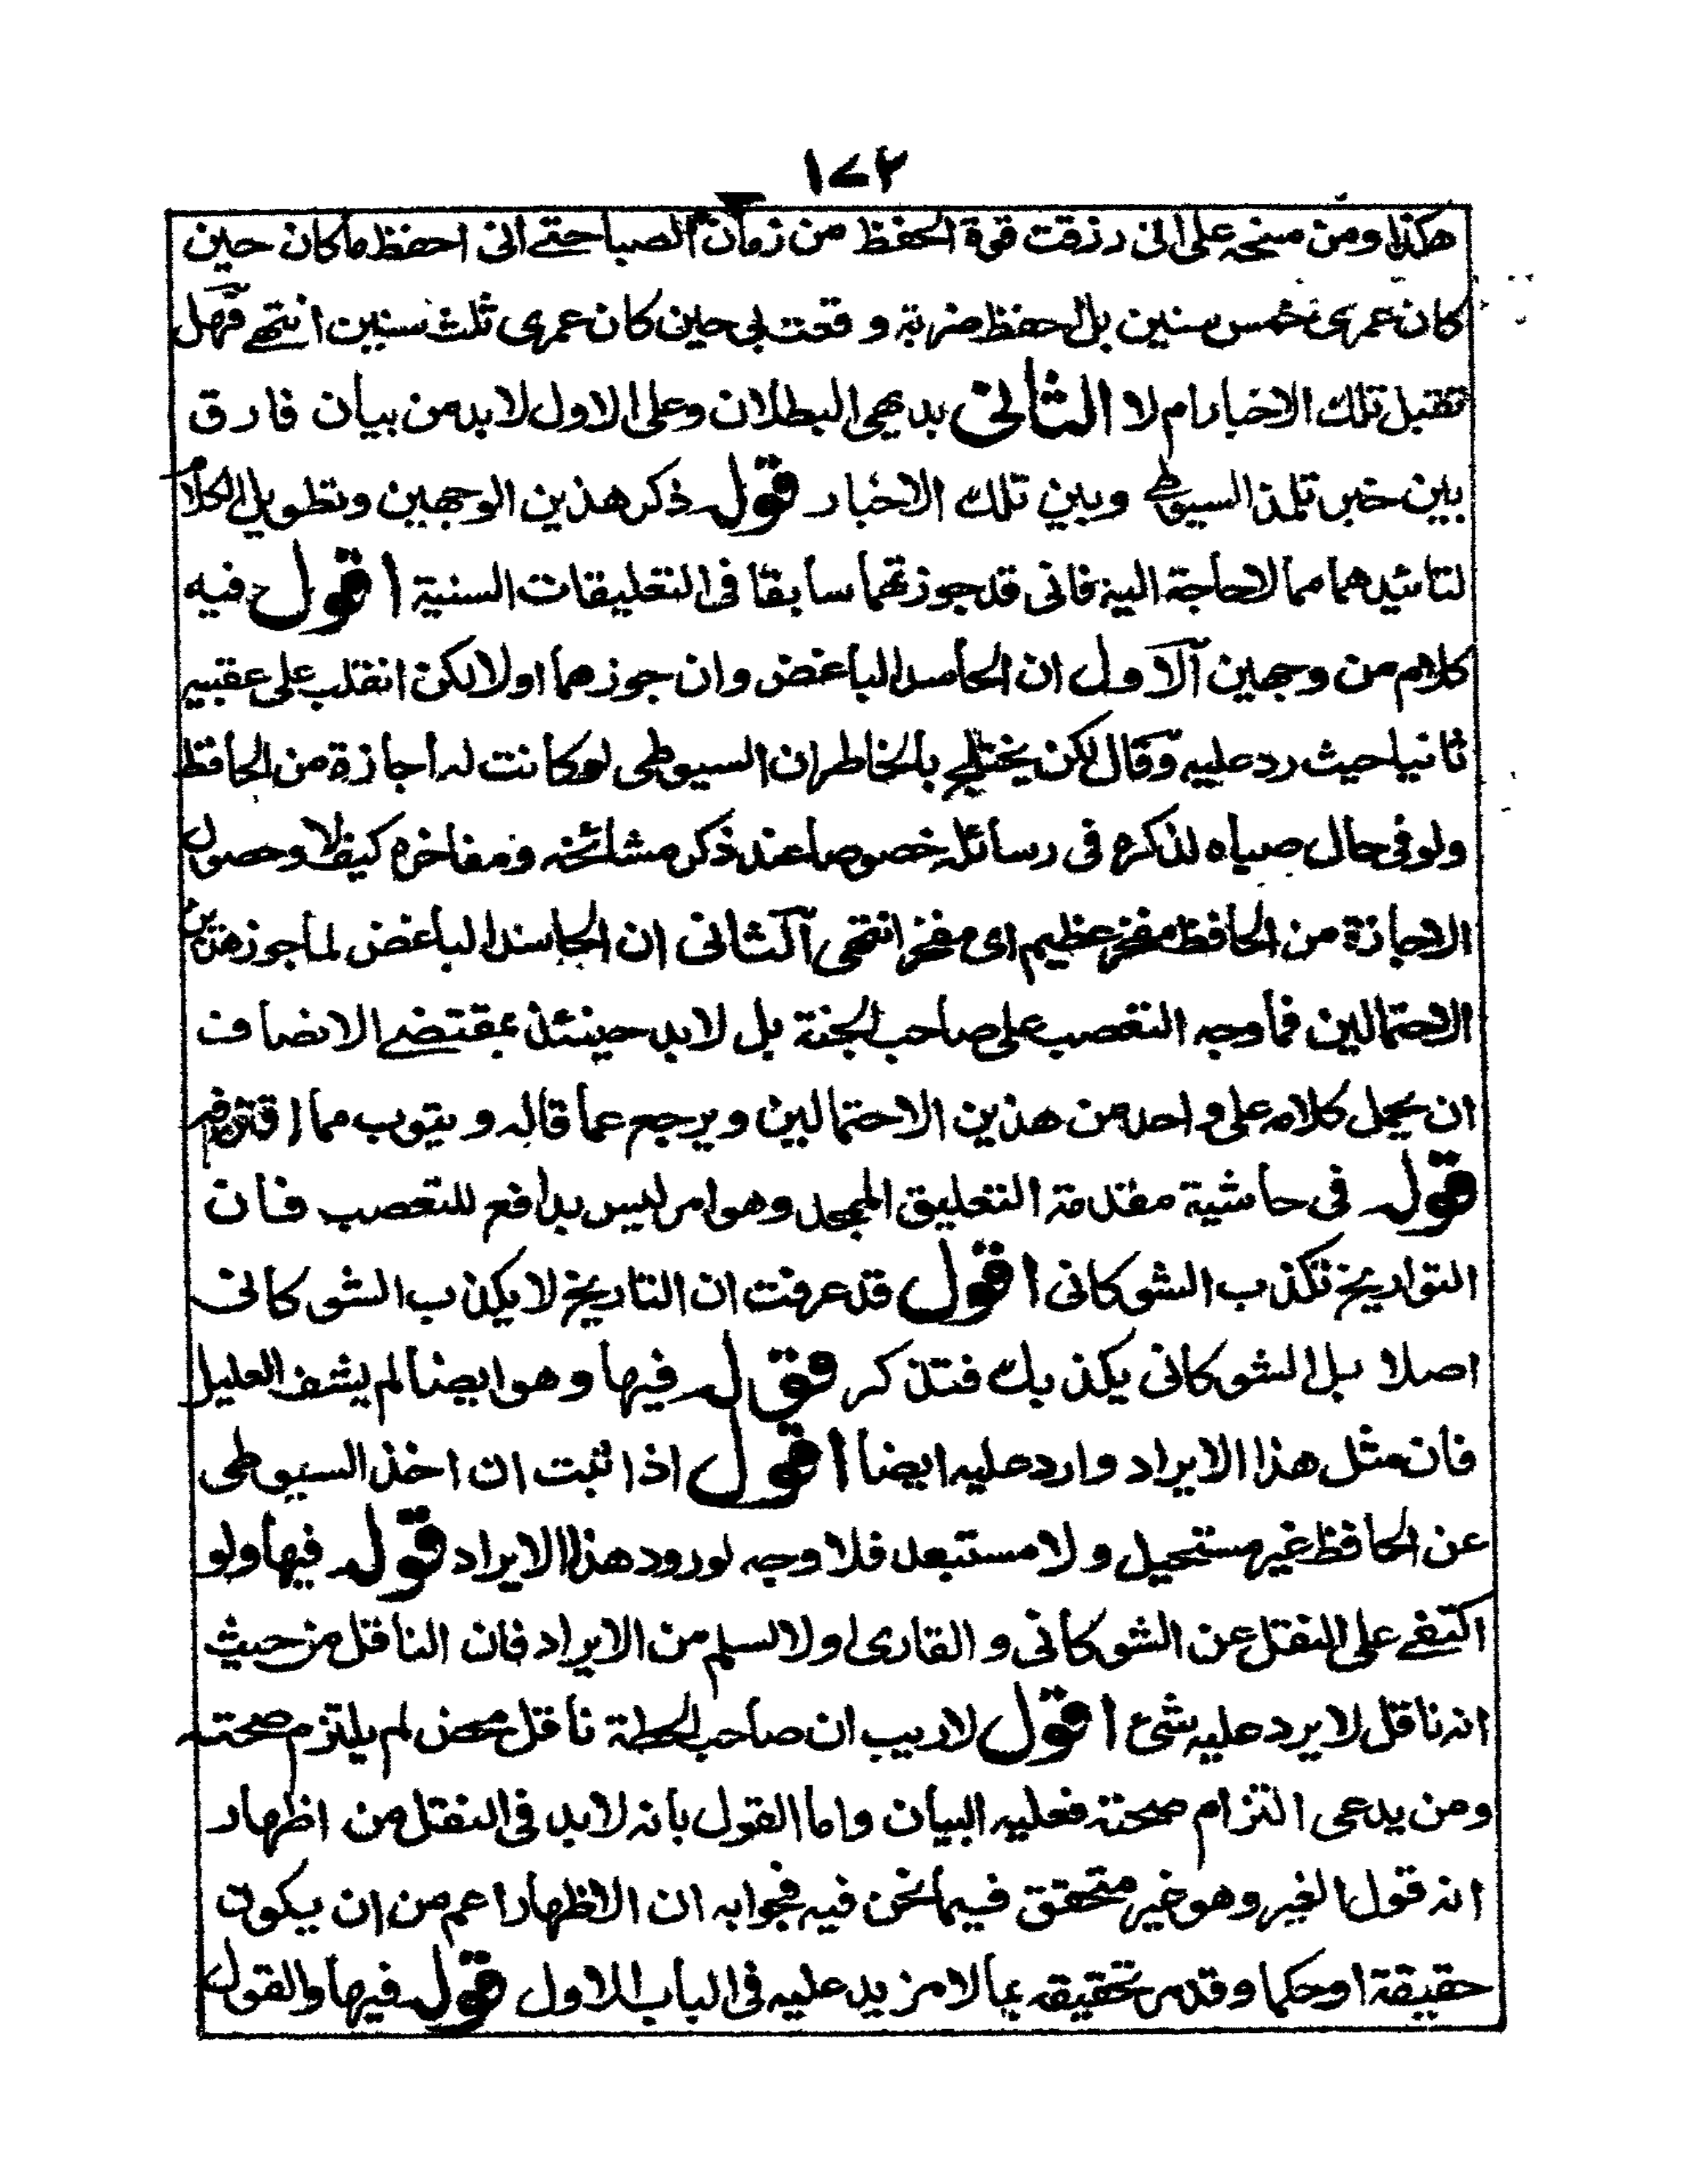 ١٧٢
هكذا ومن منحه على انى رزقت قوة الحفظ من زمان الصبا حتے انى احفظ ما كان حين
كان عمرى خمس سنين بل احفظ ضربة وقعت بى حين كان عمرى ثلث سنين انتهے فهل
تقبل تلك الاخبار ام لا الثانى بديهى البطلان وعلى الاول لا بد من بيان فارق
بين خبر تلمذ السيوطے وبين تلك الاخبار قولہ ذكر هذين الوجهين وتطويل الكلام
لتائيدهما مما لا حاجة اليه فانى قد جوزتهما سابقا فى التعليقات السنية اقول فيه
كلام من وجهين الاول ان الحاسد الباغض وان جوزهما اولا لكن انقلب على عقبيه
ثانيا حيث رد عليه وقال لكن يختلج بالخاطر ان السيوطى لو كانت له اجازة من الحافظ
ولو فى حال صباه لذكره فى رسائله خصوصا عند ذكر مشائخه ومفاخره كيف لا وحصول
الاجازة من الحافظ مفخر عظيم اى مفخر انتهى الثانى ان الحاسد الباغض لما جوز هذين
الاحتمالين فما وجه التعصب على صاحب الجنة بل لا بد حينئذ بمقتضے الانصاف
ان يحمل كلامه على واحد من هذين الاحتمالين ويرجع عما قاله ويتوب مما اقترفه
قولہ فى حاشية مقدمة التعليق الممجد وهو امر ليس بدافع للتعصب فان
التواريخ تكذب الشوكانى اقول قد عرفت ان التاريخ لا يكذب الشوكانى
اصلا بل الشوكانى يكذبك فتذكر قولہ فيها وهو ايضا لم يشف العليل
فان مثل هذا الايراد وارد عليه ايضا اقول اذا ثبت ان اخذ السيوطى
عن الحافظ غير مستحيل ولا مستبعد فلا وجه لورود هذا الايراد قولہ فيها ولو
اكتفے على النقل عن الشوكانى و القارى اولا لسلم من الايراد فان الناقل من حيث
انه ناقل لا يرد عليه شئ اقول لا ريب ان صاحب الحطة ناقل محض لم يلتزم صحته
ومن يدعى التزام صحته فعليه البيان واما القول بانه لا بد فى النقل من اظهار
انه قول الغير وهو غير متحقق فيما نحن فيه فجوابه ان الاظهار اعم من ان يكون
حقيقة او حكما وقد مر تحقيقه بما لا مزيد عليه فى الباب الاول قولہ فيها والقول